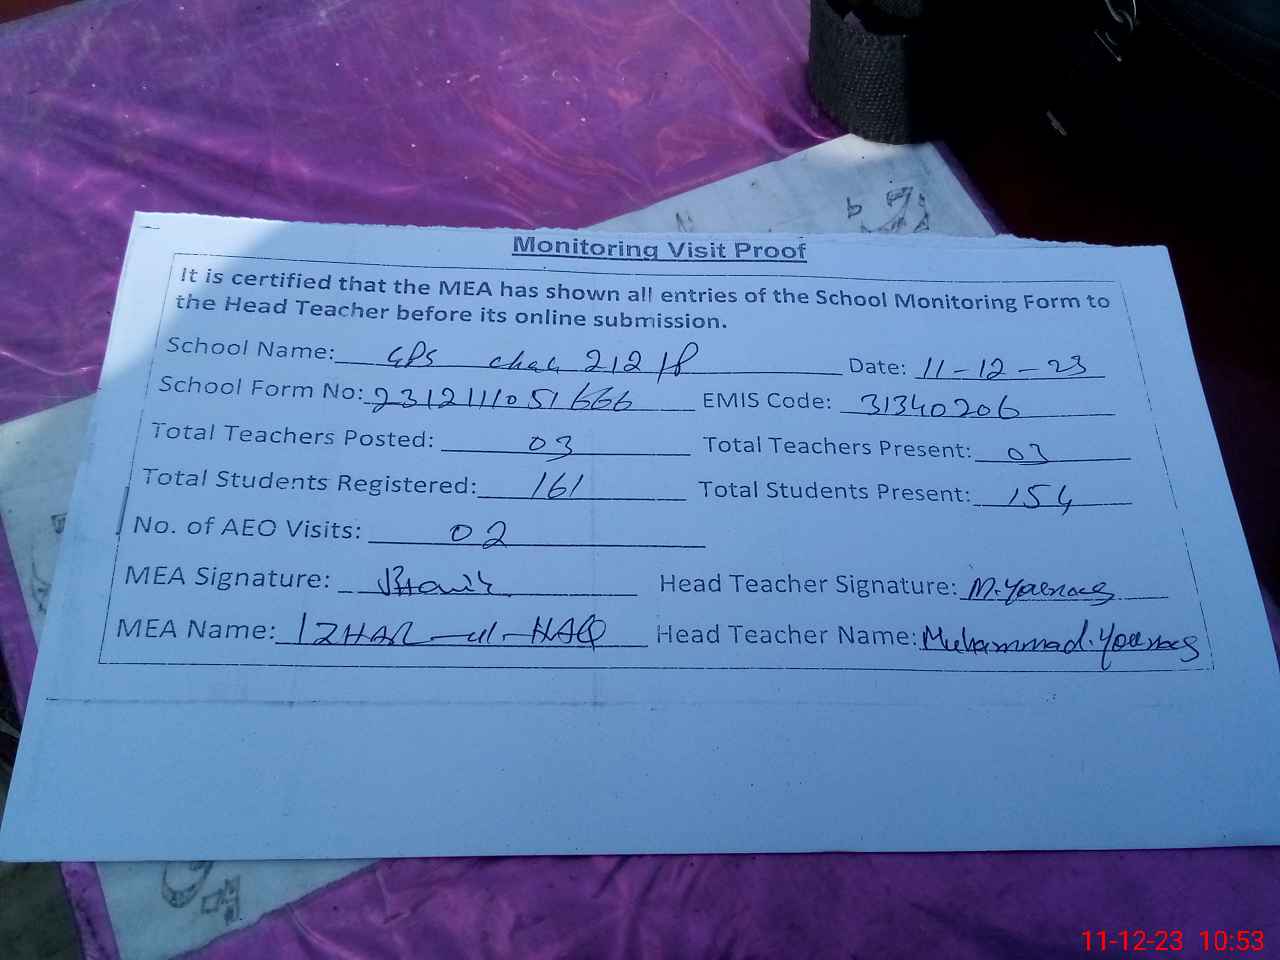 Monitoring Visit Proof
It is certified that the MEA has shown all entries of the School Monitoring Form to
the Head Teacher before its online submission.
School Name: GPS chak 212 P Date: 11-12-23
School Form No: 2312111051666 EMIS Code: 31340206
Total Teachers Posted: 03 Total Teachers Present: 03
Total Students Registered: 161 Total Students Present: 154
No. of AEO Visits: 02
MEA Signature: Head Teacher Signature: M. Younas
MEA Name: IZHAR-ul-HAQ Head Teacher Name: Muhammad. Younas
11-12-23 10:53